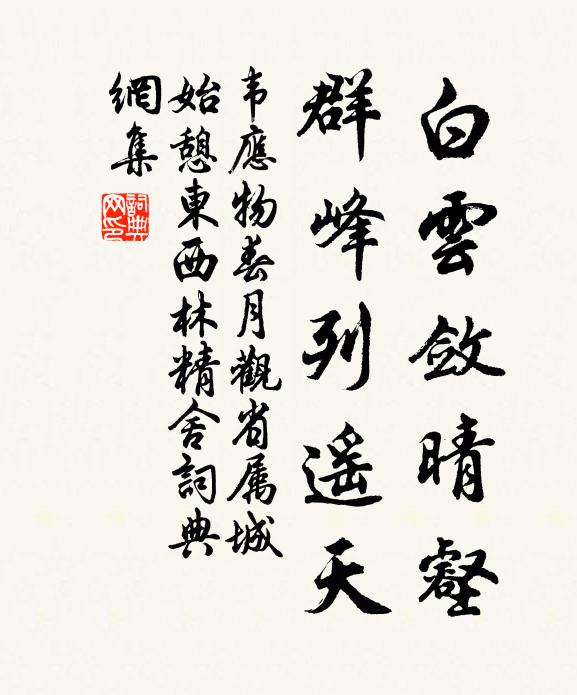 白雲斂晴壑
群峰列遥天
韦應物春月觀省属城
始憩東西林精舍詞典
網集
詞典
网印